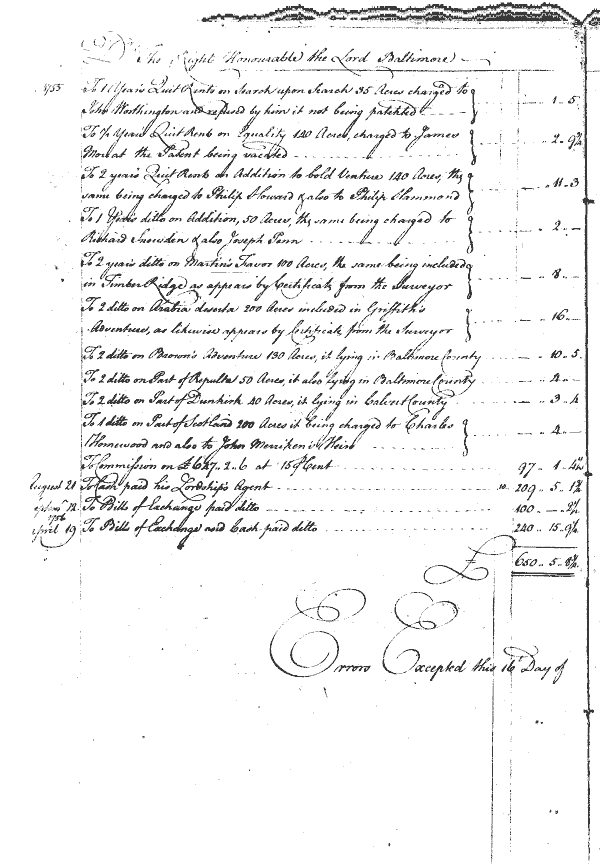 The Right Honourable the Lord Baltimore
1755 To 1 Years Quit Rents on Search upon Search 35 Acres charged to
John Worthington and refused by him it not being patented .. 1 .. 5
To Years Quit Rent on Equality 140 Acres, charged to James
Mon at the Patent being vacated .. 2 .. 9
To 2 years Quit Rents on Addition to bold Venture 140 Acres, the
same being charged to Philip Howard & also to Philip Hammond .. 11 .. 3
To 1 Years ditto on Addition, 50 Acres, the same being charged to
Richard Snowden & also Joseph Penn .. 2 .. —
To 2 years ditto on Martin's Favor 100 Acres, the same being included
in Timber Ridge as appears by Certificate from the Surveyor .. 8 .. —
To 2 ditto on Arabia deserta 200 Acres included in Griffith's
Adventures, as likewise appears by Certificate from the Surveyor .. 16 .. —
To 2 ditto on Brown's Adventure 130 Acres, it lying in Baltimore County .. 10 .. 5
To 2 ditto on Part of Reputta 50 Acres, it also lying in Baltimore County .. 4 .. —
To 2 ditto on Part of Dunkirk 40 Acres, it lying in Calvert County .. 3 .. 4
To 1 ditto on Part of Scotland 200 Acres it being charged to Charles
Homewood and also to John Merriken's Heirs .. 4 .. —
To Commission on £647 .. 2 .. 6 at 15 ℔ Cent 97 .. 1 .. 4½
August 21 To Cash paid his Lordship's Agent 209 .. 5 .. 1
12 To Bills of Exchange paid ditto 100 .. —
1756
April 19 To Bills of Exchange and Cash paid ditto 240 .. 15 .. 9
£ 650 .. 5 .. 8
Errors Excepted this 16th Day of